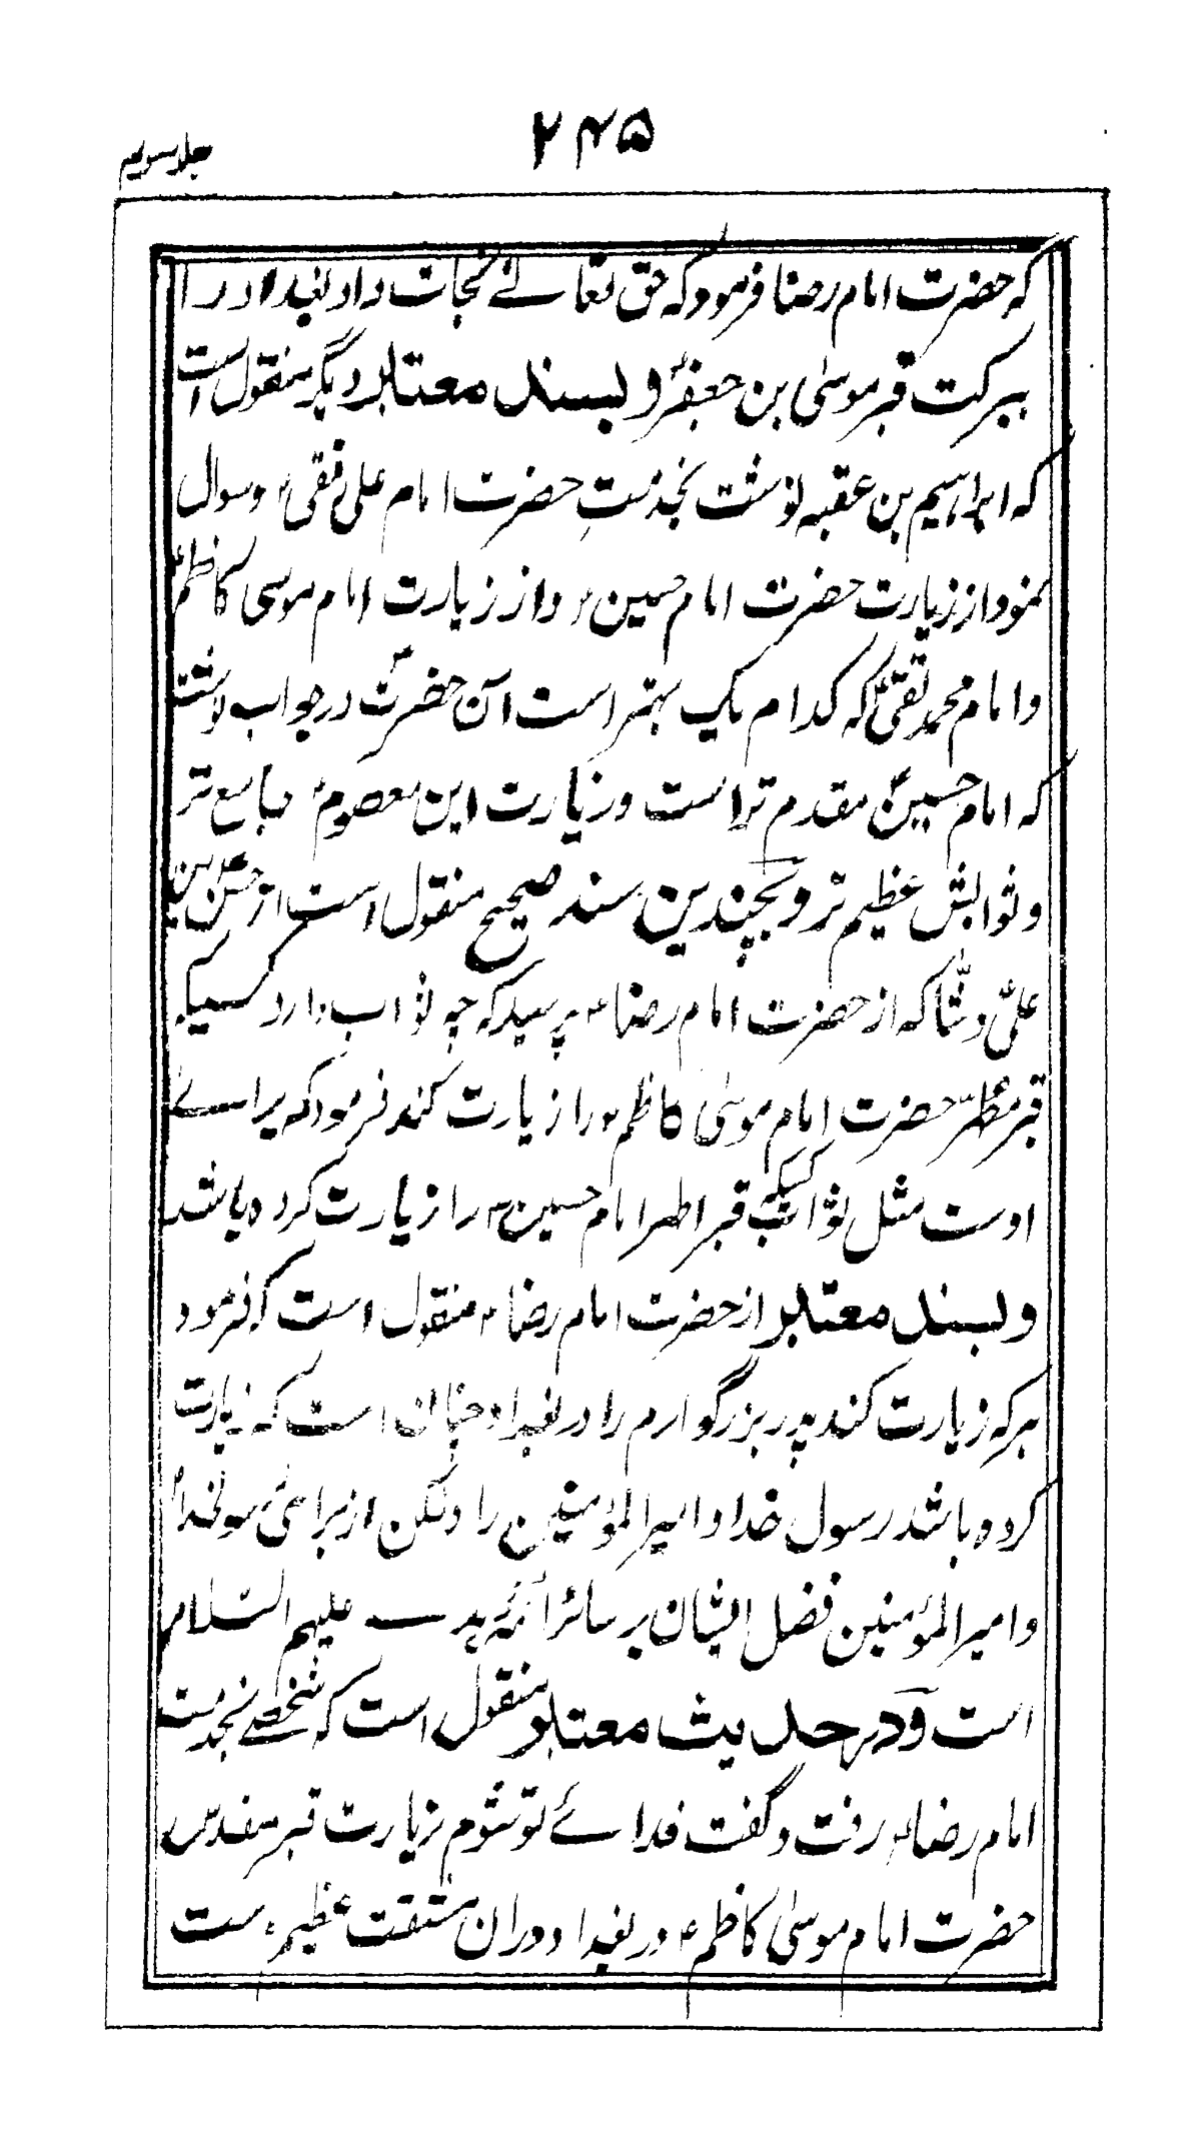 ۲۴۵
جلد سویم
که حضرت امام رضا فرمود که حق تعالے نجات داد بغداد را
ببرکت قبر موسیٰ بن جعفرؑ و بسند معتبر دیگر منقول است
که ابراهیم بن عقبه نوشت بخدمتِ حضرت امام علی نقیؑ و سوال
نمود از زیارت حضرت امام حسینؑ و از زیارت امام موسی کاظمؑ
و امام محمد تقیؑ که کدام یک بهتر است آن حضرتؑ در جواب نوشت
که امام حسینؑ مقدم تر است و زیارت این معصومؑ جامع تر
و ثوابش عظیم تر و بچندین سند صحیح منقول است از حسن بن
علی وشّا که از حضرت امام رضاؑ پرسید که چه ثواب دارد کسیکه
قبر مطهّر حضرت امام موسیٰ کاظمؑ را زیارت کند فرمود که براے
اوست مثل ثواب کسیکه قبر اطهر امام حسینؑ را زیارت کرده باشد
و بسند معتبر از حضرت امام رضاؑ منقول است که فرمود
هر که زیارت کند پدر بزرگوارم را در بغداد چنان است که زیارت
کرده باشد رسول خدا و امیر المؤمنین را ولکن از برای رسولخدا
و امیر المؤمنین فضل ایشان بر سائر ائمّه هدے علیهم السّلام
است و در حدیث معتبر منقول است که شخصے بخدمت
امام رضاؑ رفت و گفت فداے تو شوم زیارت قبر مقدس
حضرت امام موسیٰ کاظمؑ در بغداد و دران مشقت عظیم ست